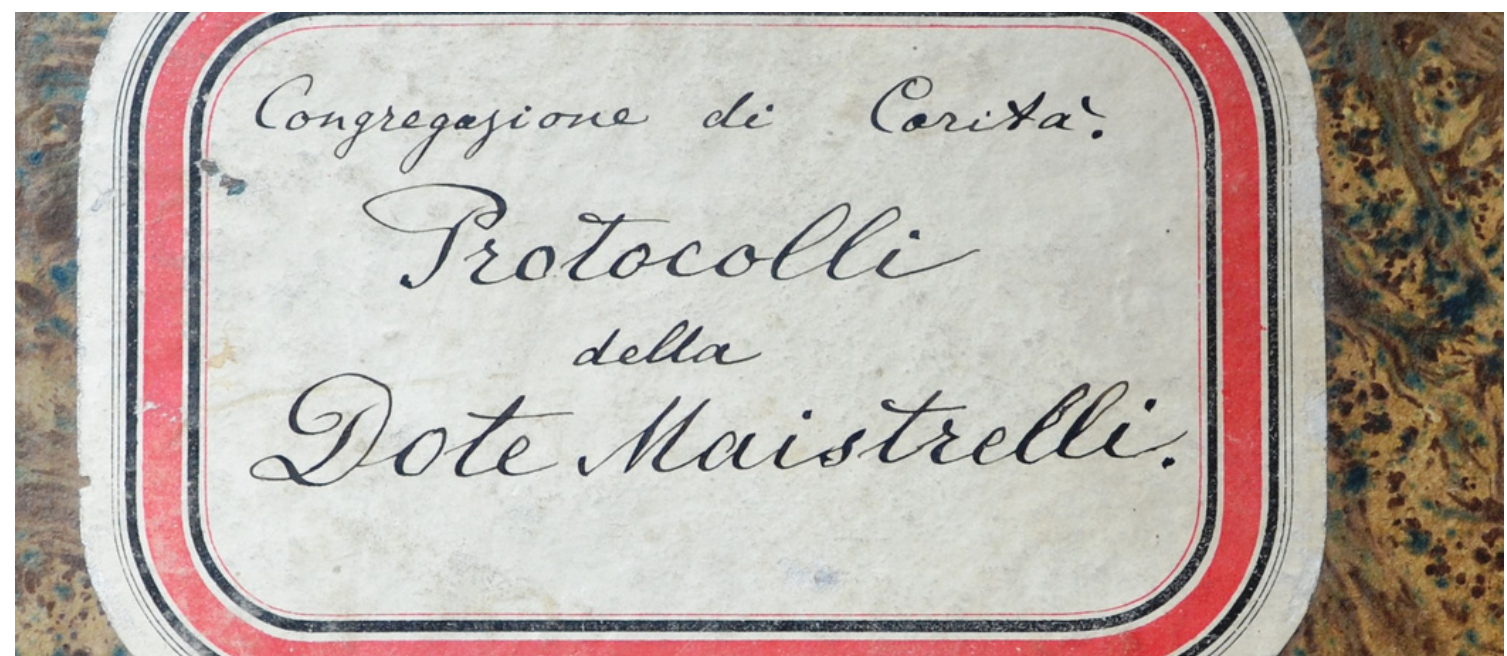 Congregazione di Carità.
Protocolli
della
Dote Maistrelli.